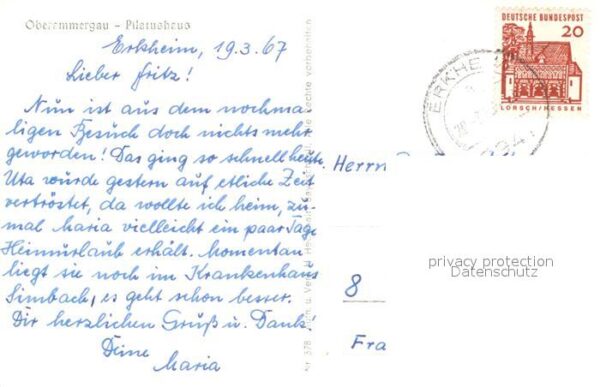 Oberammergau - Pilatushaus
Erkheim, 19.3.67
Lieber Fritz!
Nun ist aus dem nochma-
ligen Besuch doch nichts mehr
geworden! Das ging so schnell heute,
Uta würde gestern auf etliche Zeit
vertröstet, da wollte ich heim, zu-
mal Maria vielleicht ein paar Tage
Heimurlaub erhält. Momentan
liegt sie noch im Krankenhaus
Simbach, es geht schon besser.
Dir herzlichen Gruß u. Dank.
Deine
Maria
DEUTSCHE BUNDESPOST
20
LORSCH/HESSEN
ERKHE
Herrn
privacy protection
Datenschutz
8
Fra
Nr. 378